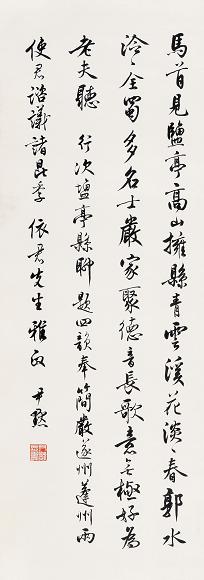 馬首見鹽亭高山擁縣青雲溪花淡〻春郭水
泠〻全蜀多名士嚴家聚德音長歌意無極好為
老夫聽 行次鹽亭縣聊題四韻奉簡嚴遂州蓬州兩
使君諮議諸昆季 依君先生雅正 尹默